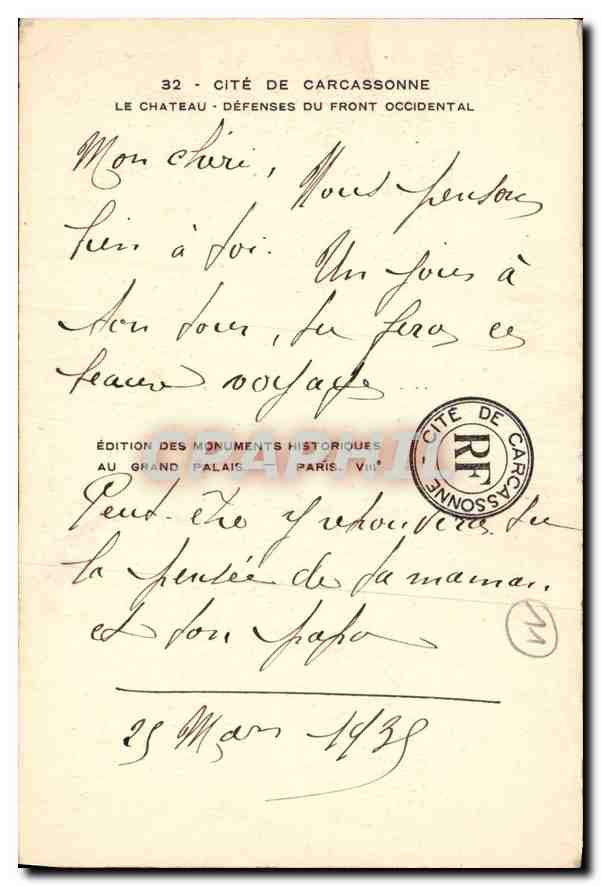 32 - CITÉ DE CARCASSONNE
LE CHATEAU - DÉFENSES DU FRONT OCCIDENTAL
Mon chéri, Nous pensons
bien à toi. Un jour à
ton tour, tu feras ces
beaux voyages...
ÉDITION DES MONUMENTS HISTORIQUES
AU GRAND PALAIS. — PARIS. VIIIe
CPAPHIL
CITÉ DE CARCASSONNE
RF
Peut-être y retrouveras tu
la pensée de ta maman
et ton papa
11
25 Mars 1935